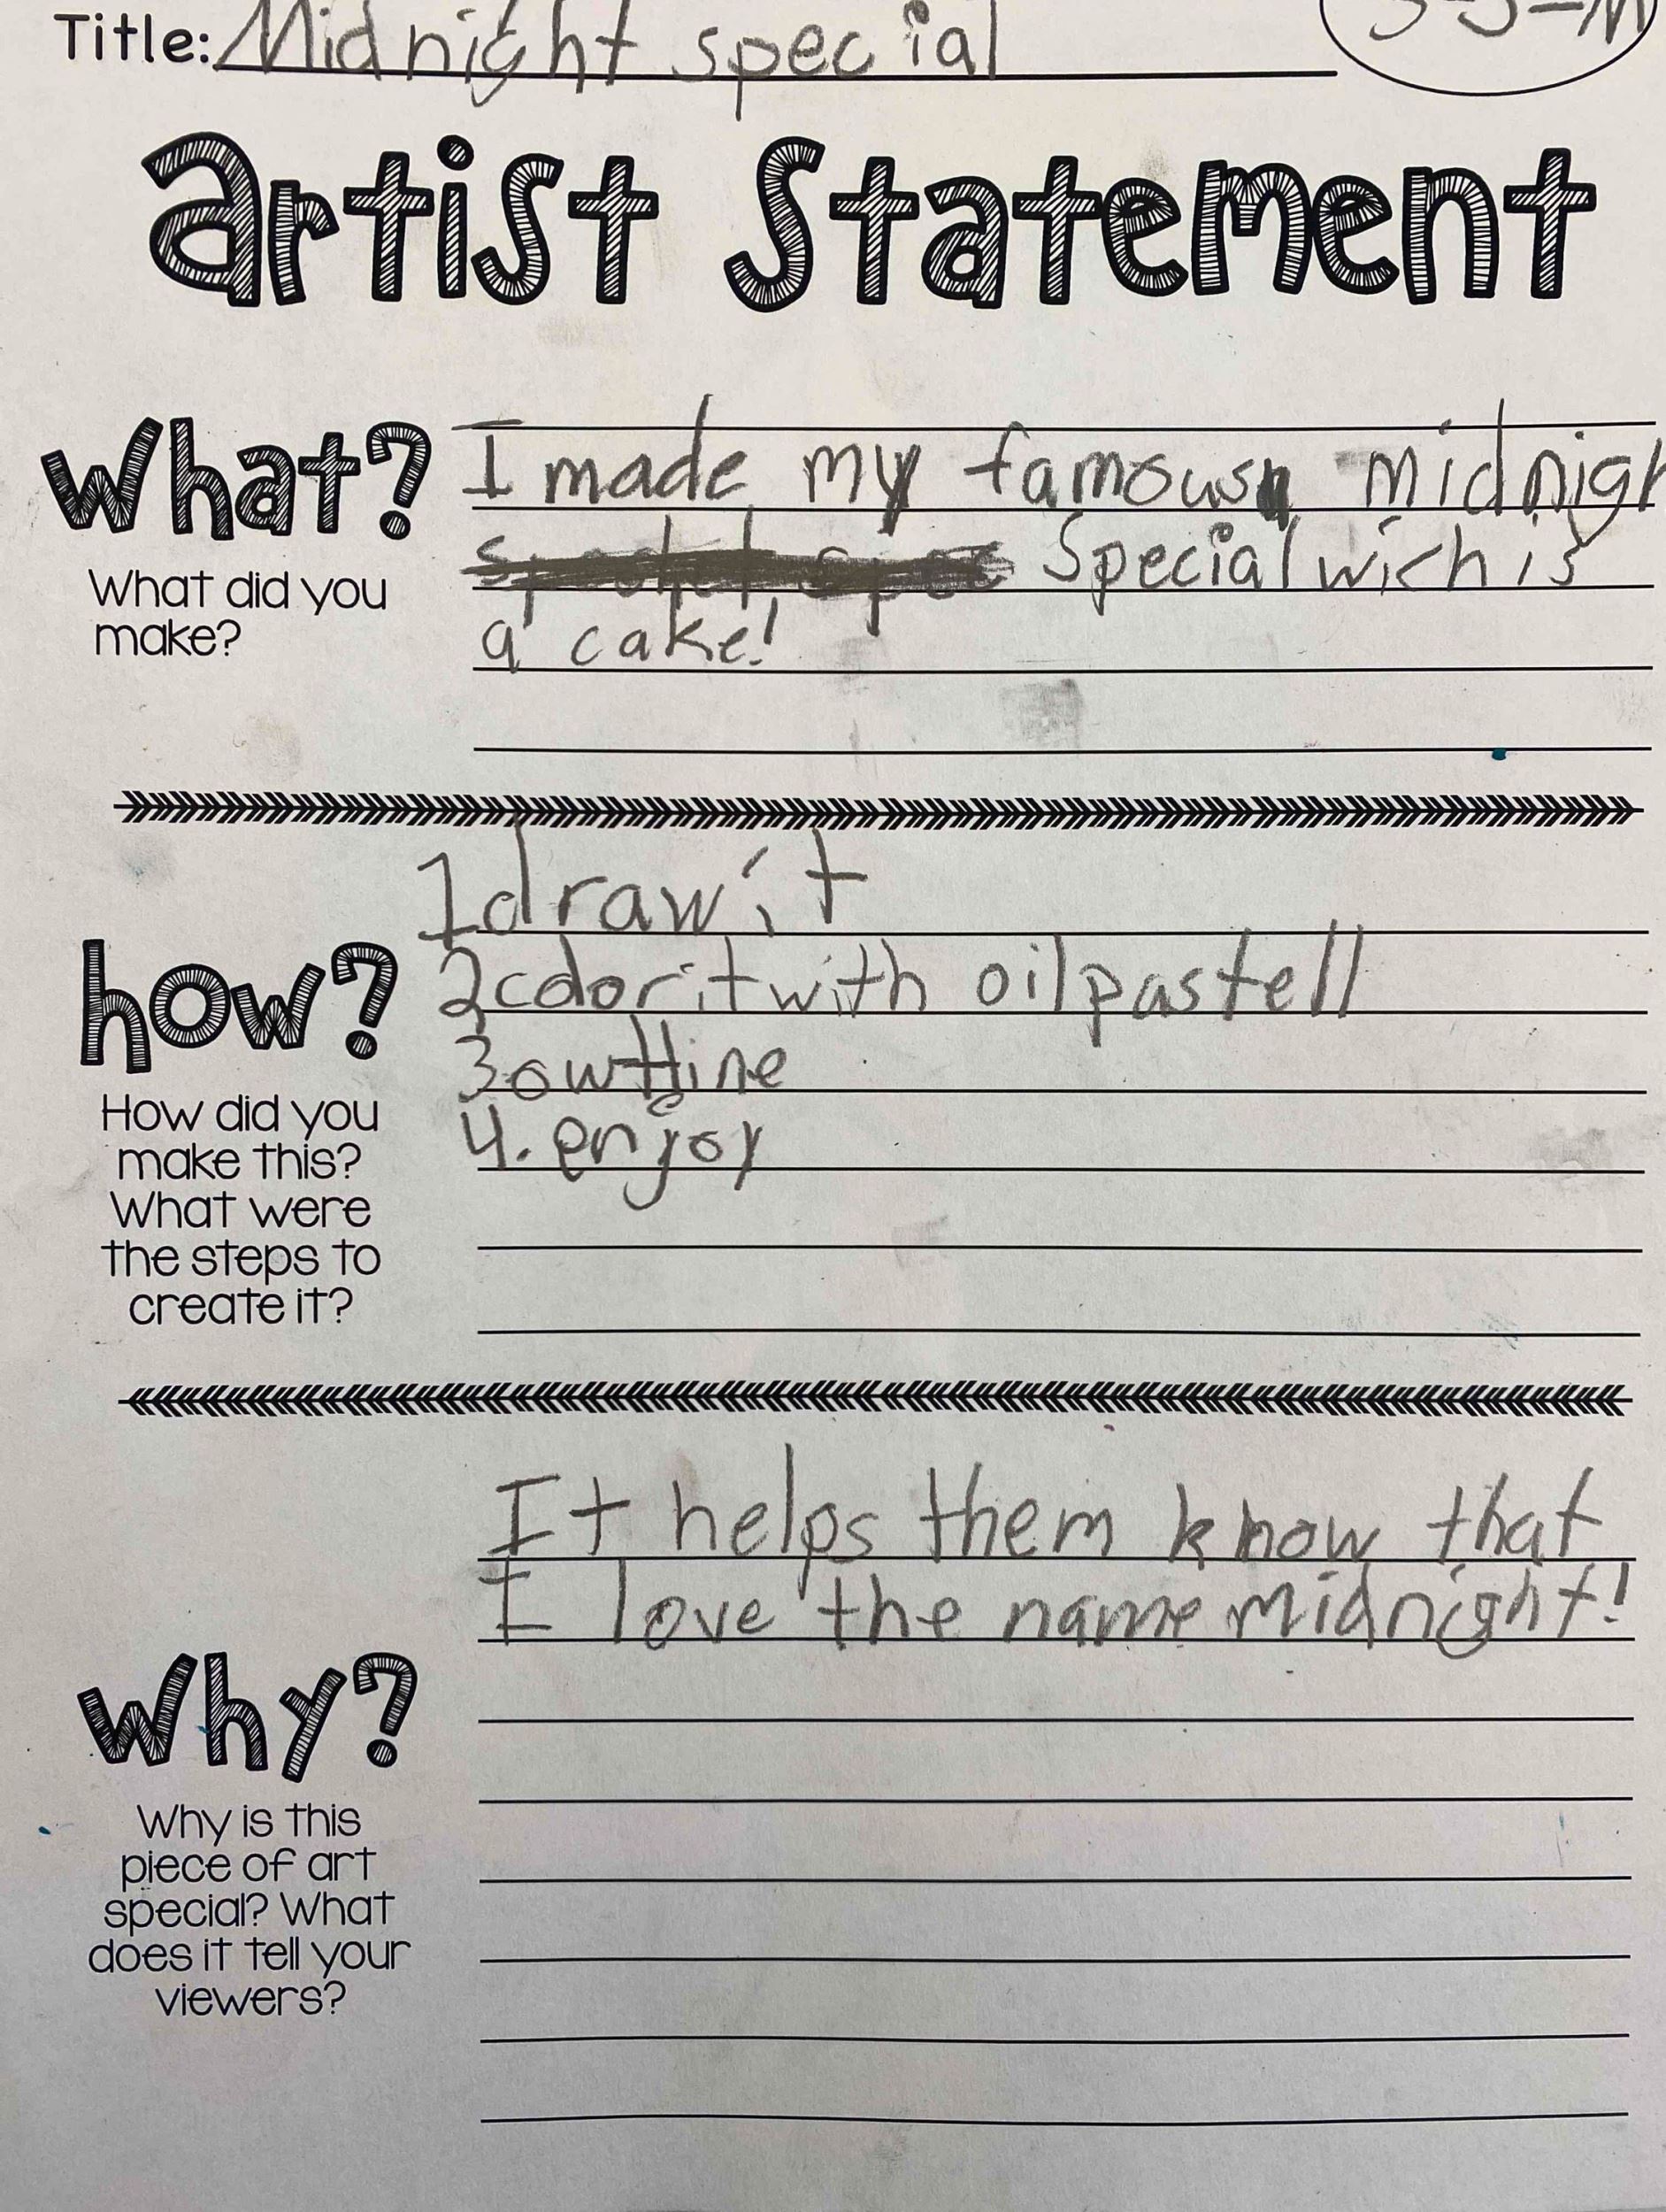 Title: Midnight special
Artist Statement
What?
What did you make?
I made my famous midnigh
special wich is
a cake!
how?
How did you
make this?
What were
the steps to
create it?
1 draw it
2 color it with oil pastell
3 owtline
4. enjoy
Why?
Why is this
piece of art
special? What
does it tell your
viewers?
It helps them know that
I love the name midnight!